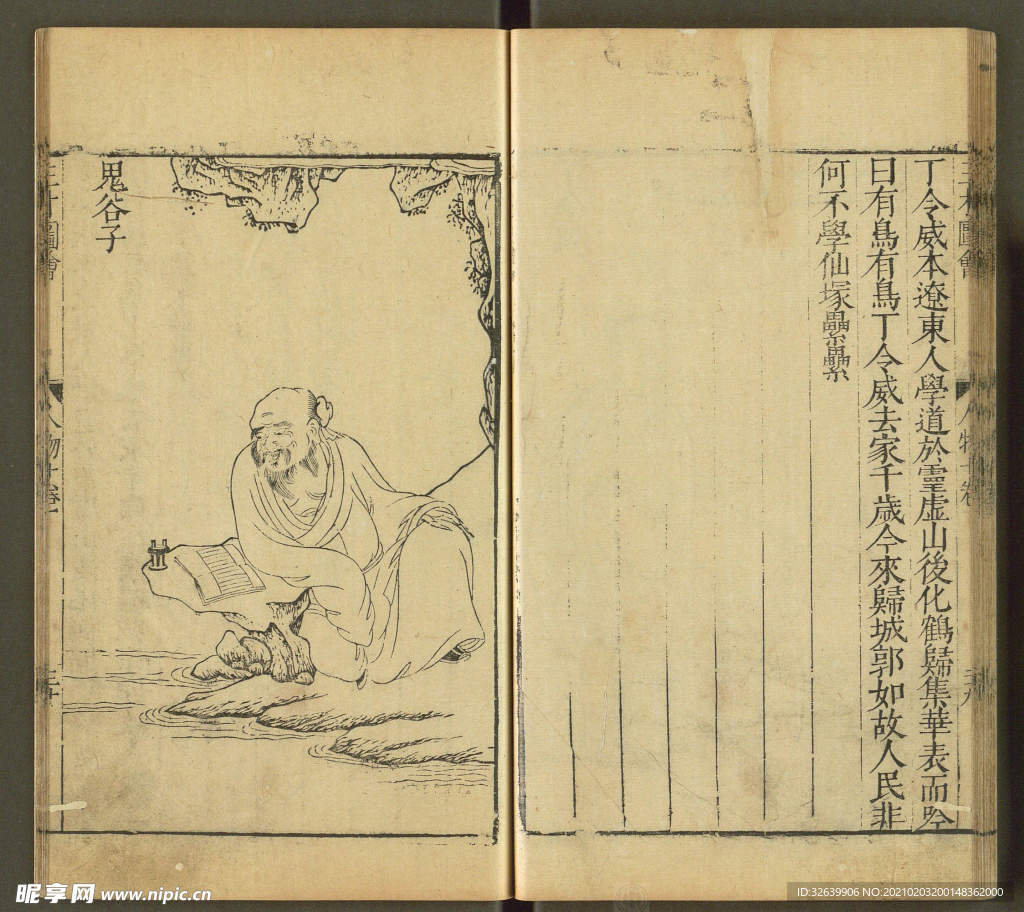 三才圖會
人物十卷
三九
丁令威本遼東人學道於靈虛山後化鶴歸集華表而吟
曰有鳥有鳥丁令威去家千歲今來歸城郭如故人民非
何不學仙塚纍纍
鬼谷子
圖會
人物十卷
昵享网 www.nipic.cn
ID:32639906 NO:20210203200148362000